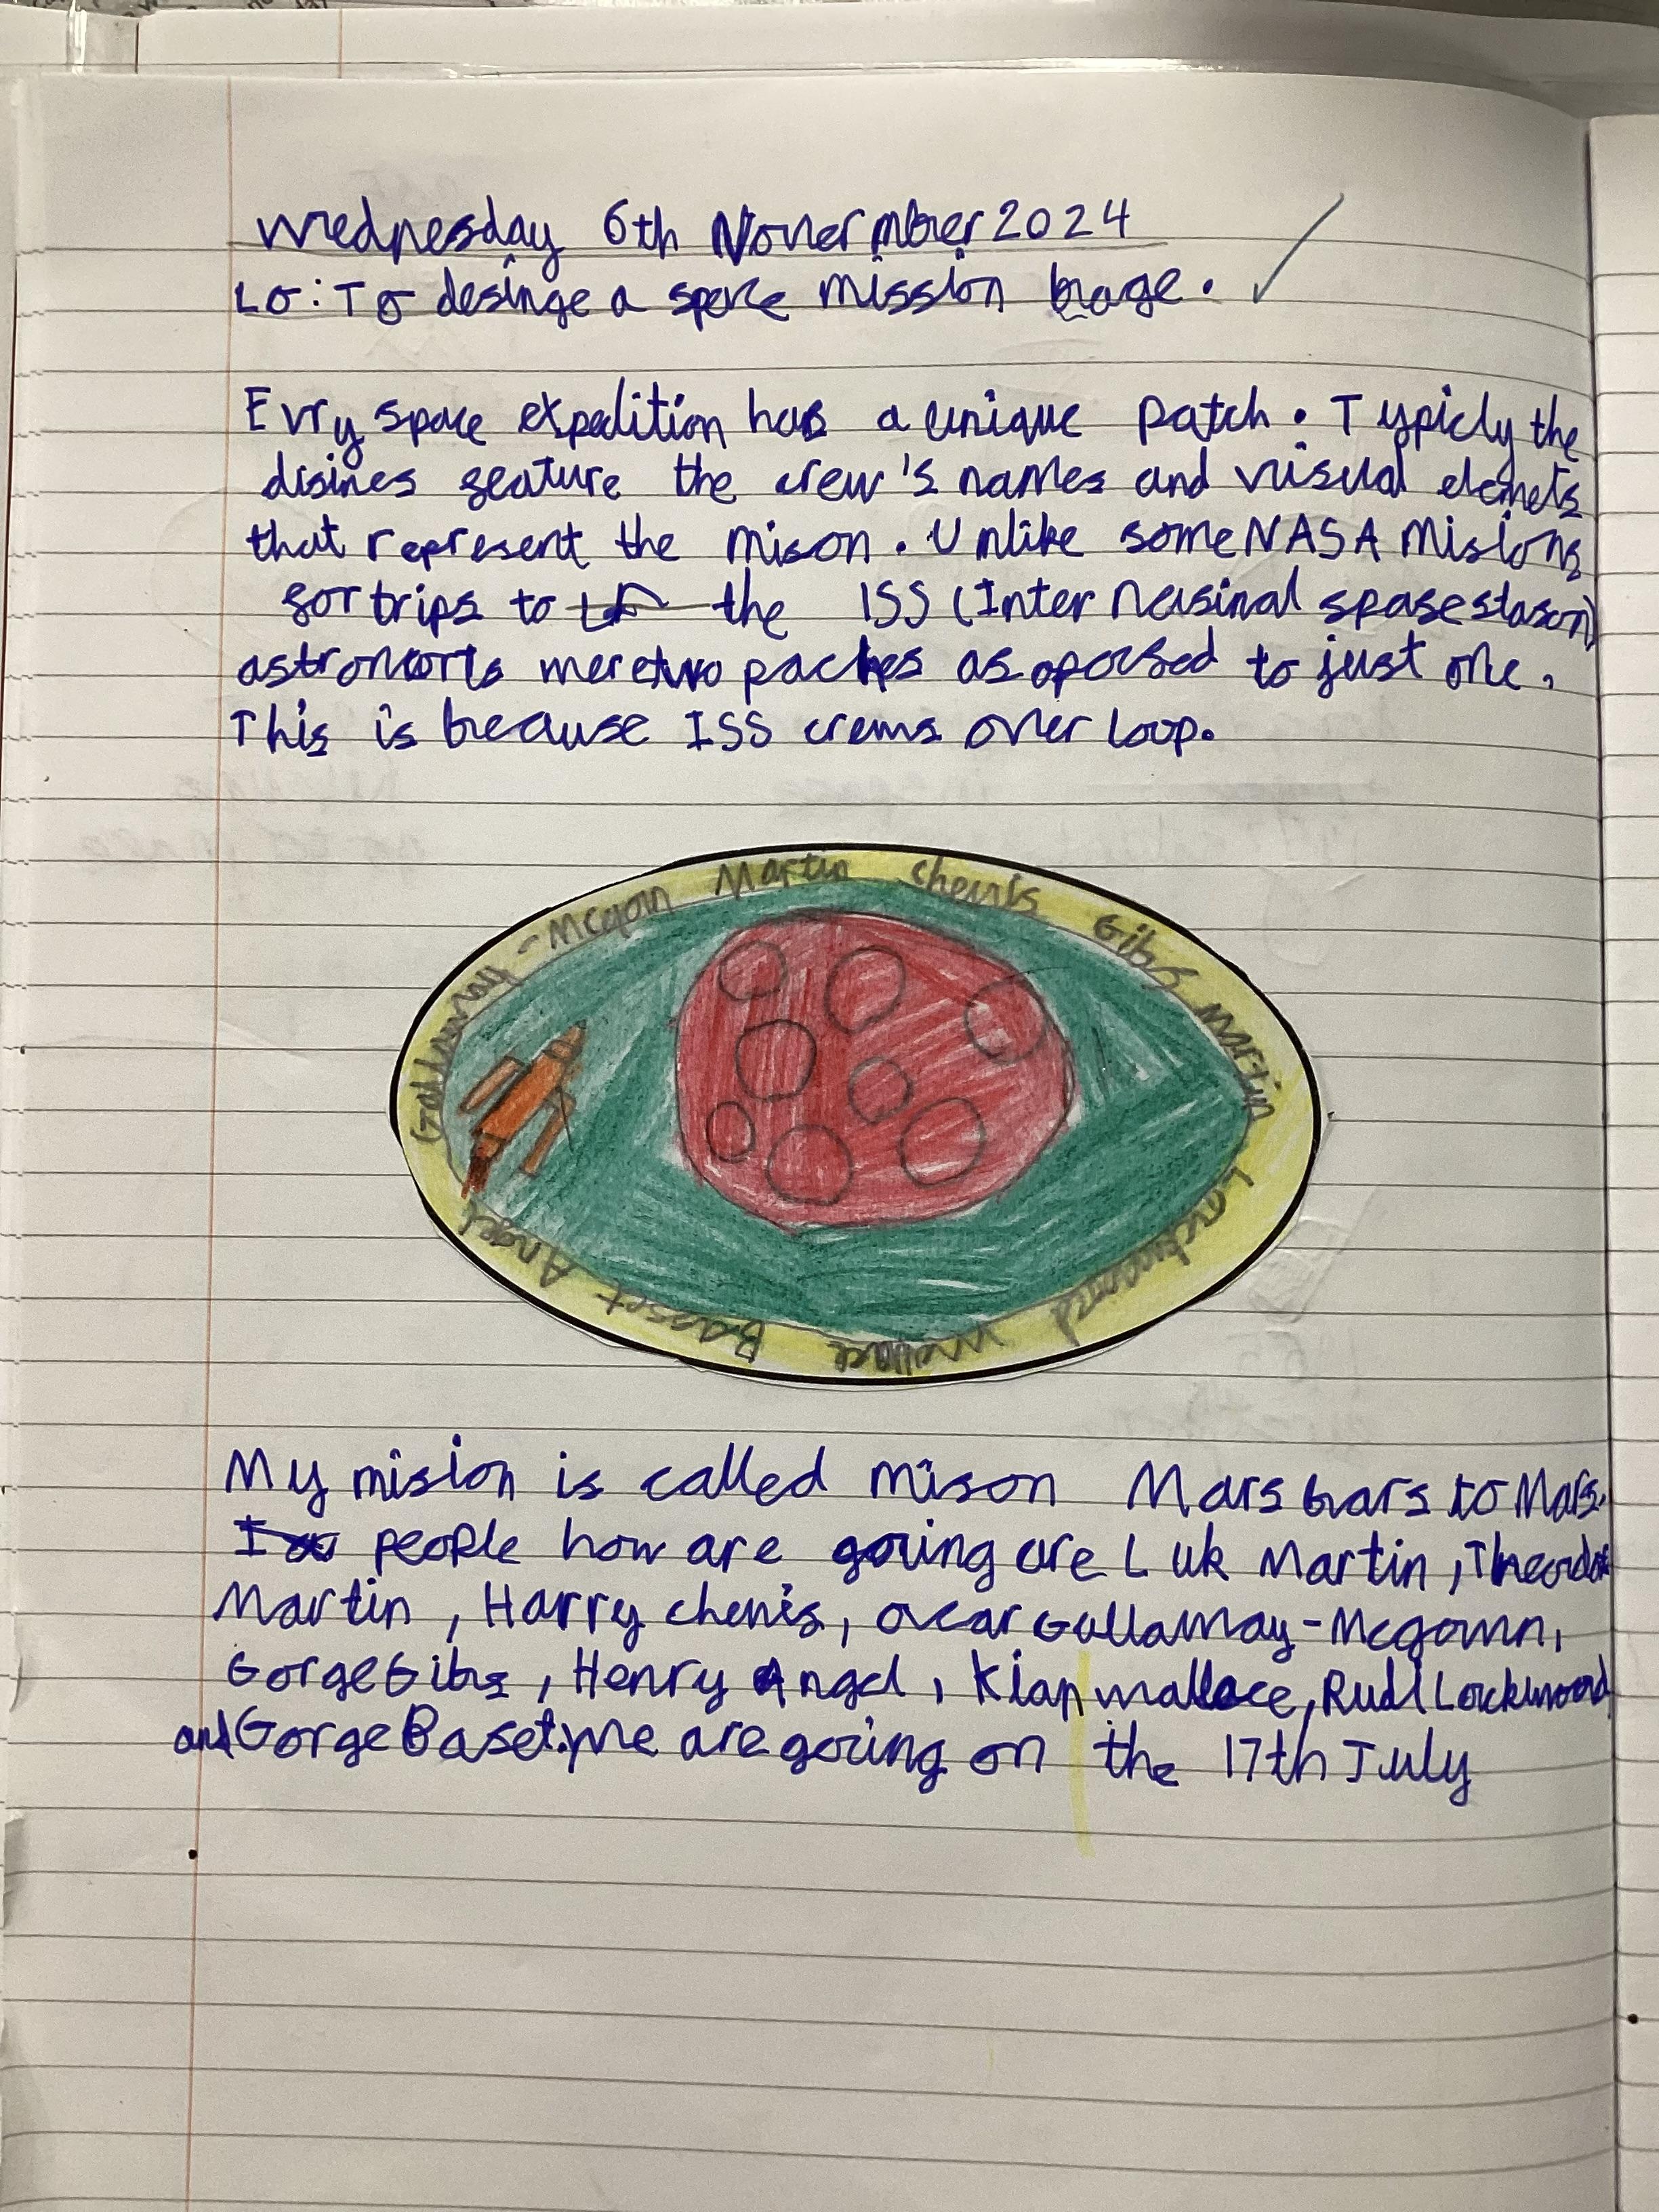 Wednesday 6th November 2024
LO: To desinge a space mission bage.
Evry space expedition has a unique patch. Typicly the
disines feature the crew's names and visual elemets
that represent the mison. Unlike some NASA Misions
for trips to the ISS (Inter nasinal spase stason)
two paches as oposed to just one.
This is because ISS crews over loop.
Gallaway - Mcgown Martin Chewis Gibs Martin
Lockwood Wallace Basset Angel
My mision is called mison Mars bars to Mars.
people how are going are Luk Martin, Theodor
Martin, Harry chewis, Galloway-Mcgown,
Gorge Gibs, Henry Angel, Kian wallace, Rudi Lockwood
and Gorge Baset. we are going on the 17th July